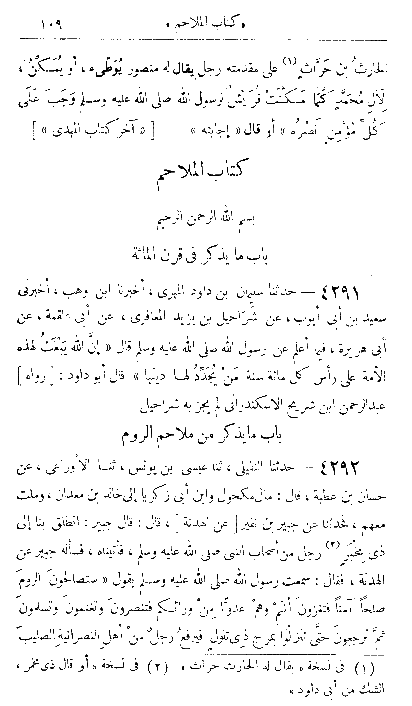 « كتاب الملاحم » ١٠٩
الحارث بن حَرَّاثٍ (١) على مقدمته رجل يقال له منصور يُوَطِّىء ، أو يُمَكِّنُ ،
لِآلِ مُحَمَّدٍ كَمَا مَكَّنَتْ قُرَيْشٌ لرسول الله صلى الله عليه وسلم وَجَبَ عَلَى
كُلِّ مُؤْمِنٍ نَصْرُهُ » أو قال « إجابته » [ « آخر كتاب المهدى » ]
كتاب الملاحم
بسم الله الرحمن الرحيم
باب ما يذكر فى قرن المائة
٤٢٩١ — حدثنا سليمان بن داود المهرى ، أخبرنا ابن وهب ، أخبرنى
سعيد بن أبى أيوب ، عن شَرَاحيل بن يزيد المعافرى ، عن أبى علقمة ، عن
أبى هريرة ، فيما أعلم عن رسول الله صلى الله عليه وسلم قال « إنَّ اللهَ يَبْعَثُ لهذه
الأمة على رأس كل مائة سنة مَنْ يُجَدِّدُ لها دينها » قال أبو داود : [ رواه ]
عبد الرحمن ابن شريح الاسكندرانى لم يجز به شراحيل
باب ما يذكر من ملاحم الروم
٤٢٩٢ — حدثنا النفيلى ، ثنا عيسى بن يونس ، ثنا الأوزاعى ، عن
حسان بن عطية ، قال : مال مكحول وابن أبى زكريا إلى خالد بن معدان ، وملت
معهم ، فحدثنا عن جبير بن نفير [ عن الهدنة ] ، قال : قال جبير : انطلق بنا إلى
ذى مِخْبَرٍ (٢) رجل من أصحاب النبى صلى الله عليه وسلم ، فأتيناه ، فسأله جبير عن
الهدنة ، فقال : سمعت رسول الله صلى الله عليه وسلم يقول « ستصالحون الرومَ
صلحاً آمناً فتغزون أنتم وهم عدوًّا مِنْ ورائكم فتنصرون وتغنمون وتسلمون
ثم ترجعون حتَّى تنزلوا بمرج ذى تلولٍ فيرفعُ رجلٌ منْ أهلِ النصرانيةِ الصليبَ
(١) فى نسخة « يقال له الحارث حراث » (٢) فى نسخة « أو قال ذى مخمر ،
الشك من أبى داود »